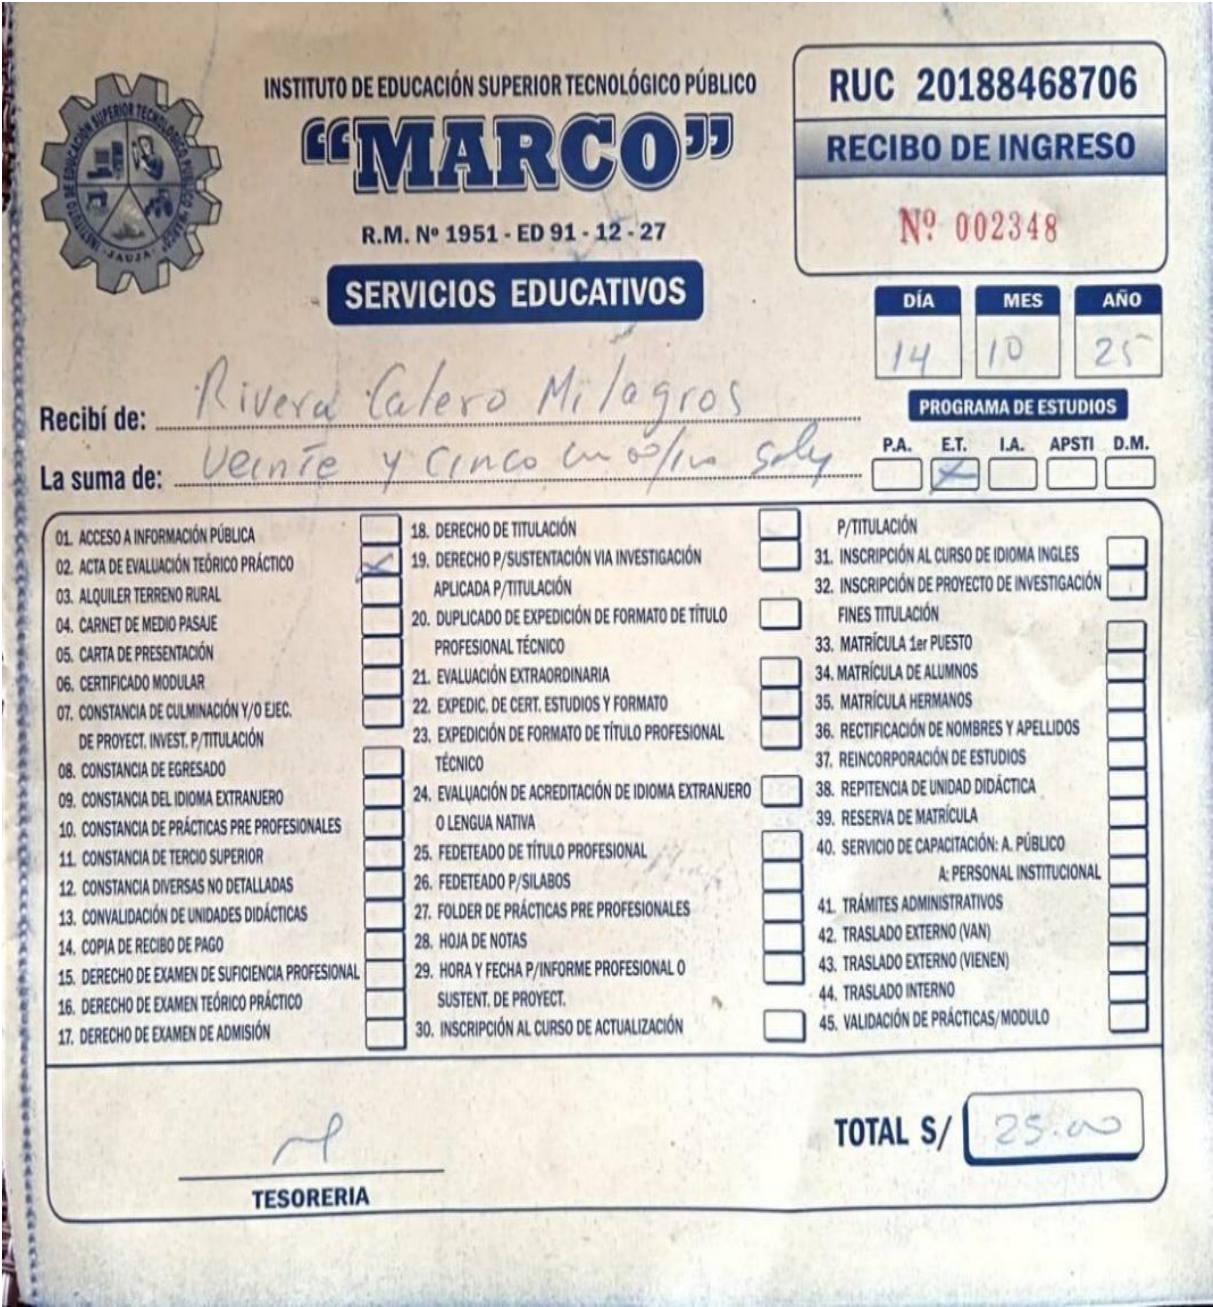 INSTITUTO DE EDUCACIÓN SUPERIOR TECNOLÓGICO PÚBLICO
“MARCO”
R.M. Nº 1951 - ED 91 - 12 - 27
SERVICIOS EDUCATIVOS
INSTITUTO DE EDUCACIÓN SUPERIOR TECNOLÓGICO PÚBLICO "MARCO"
· JAUJA ·
RUC 20188468706
RECIBO DE INGRESO
Nº 002348
DÍA MES AÑO
14 10 25
Recibí de: Rivera Calero Milagros
La suma de: Veinte y cinco con 00/100 soles
PROGRAMA DE ESTUDIOS
P.A. E.T. I.A. APSTI D.M.
01. ACCESO A INFORMACIÓN PÚBLICA
02. ACTA DE EVALUACIÓN TEÓRICO PRÁCTICO
03. ALQUILER TERRENO RURAL
04. CARNET DE MEDIO PASAJE
05. CARTA DE PRESENTACIÓN
06. CERTIFICADO MODULAR
07. CONSTANCIA DE CULMINACIÓN Y/O EJEC.
DE PROYECT. INVEST. P/TITULACIÓN
08. CONSTANCIA DE EGRESADO
09. CONSTANCIA DEL IDIOMA EXTRANJERO
10. CONSTANCIA DE PRÁCTICAS PRE PROFESIONALES
11. CONSTANCIA DE TERCIO SUPERIOR
12. CONSTANCIA DIVERSAS NO DETALLADAS
13. CONVALIDACIÓN DE UNIDADES DIDÁCTICAS
14. COPIA DE RECIBO DE PAGO
15. DERECHO DE EXAMEN DE SUFICIENCIA PROFESIONAL
16. DERECHO DE EXAMEN TEÓRICO PRÁCTICO
17. DERECHO DE EXAMEN DE ADMISIÓN
18. DERECHO DE TITULACIÓN
19. DERECHO P/SUSTENTACIÓN VIA INVESTIGACIÓN
APLICADA P/TITULACIÓN
20. DUPLICADO DE EXPEDICIÓN DE FORMATO DE TÍTULO
PROFESIONAL TÉCNICO
21. EVALUACIÓN EXTRAORDINARIA
22. EXPEDIC. DE CERT. ESTUDIOS Y FORMATO
23. EXPEDICIÓN DE FORMATO DE TÍTULO PROFESIONAL
TÉCNICO
24. EVALUACIÓN DE ACREDITACIÓN DE IDIOMA EXTRANJERO
O LENGUA NATIVA
25. FEDETEADO DE TÍTULO PROFESIONAL
26. FEDETEADO P/SILABOS
27. FOLDER DE PRÁCTICAS PRE PROFESIONALES
28. HOJA DE NOTAS
29. HORA Y FECHA P/INFORME PROFESIONAL O
SUSTENT. DE PROYECT.
30. INSCRIPCIÓN AL CURSO DE ACTUALIZACIÓN
P/TITULACIÓN
31. INSCRIPCIÓN AL CURSO DE IDIOMA INGLES
32. INSCRIPCIÓN DE PROYECTO DE INVESTIGACIÓN
FINES TITULACIÓN
33. MATRÍCULA 1er PUESTO
34. MATRÍCULA DE ALUMNOS
35. MATRÍCULA HERMANOS
36. RECTIFICACIÓN DE NOMBRES Y APELLIDOS
37. REINCORPORACIÓN DE ESTUDIOS
38. REPITENCIA DE UNIDAD DIDÁCTICA
39. RESERVA DE MATRÍCULA
40. SERVICIO DE CAPACITACIÓN: A. PÚBLICO
A: PERSONAL INSTITUCIONAL
41. TRÁMITES ADMINISTRATIVOS
42. TRASLADO EXTERNO (VAN)
43. TRASLADO EXTERNO (VIENEN)
44. TRASLADO INTERNO
45. VALIDACIÓN DE PRÁCTICAS/MODULO
TESORERIA
TOTAL S/ 25.00